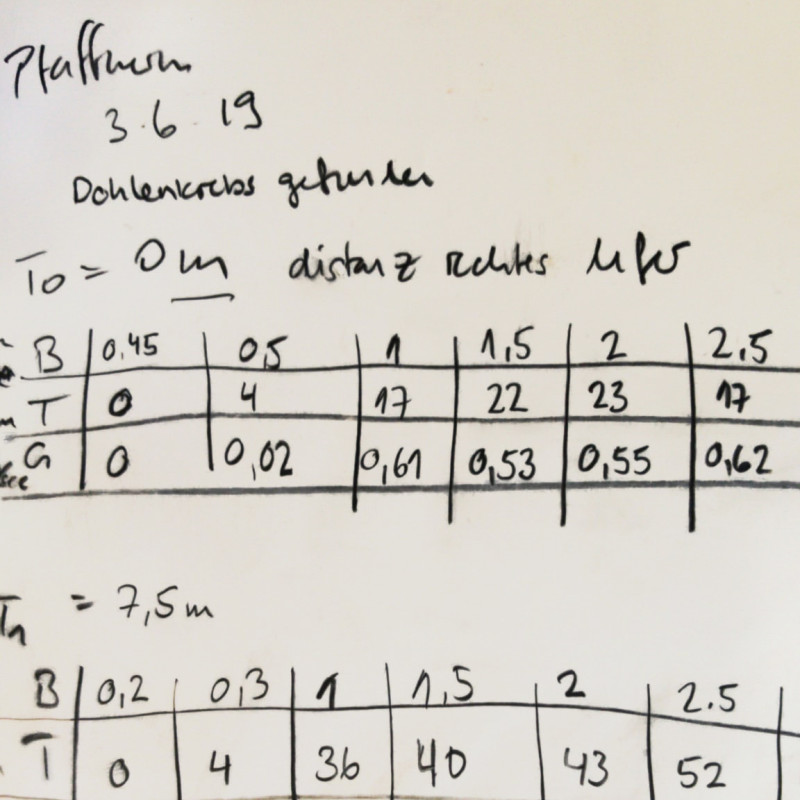 3.6.19
Dohlenkrebs gefunden
T0 = 0m distanz rechtes Ufer
B 0,45 0,5 1 1,5 2 2.5
T 0 4 17 22 23 17
G 0 0,02 0,61 0,53 0,55 0,62
T1 = 7,5m
B 0,2 0,3 1 1,5 2 2.5
T 0 4 36 40 43 52